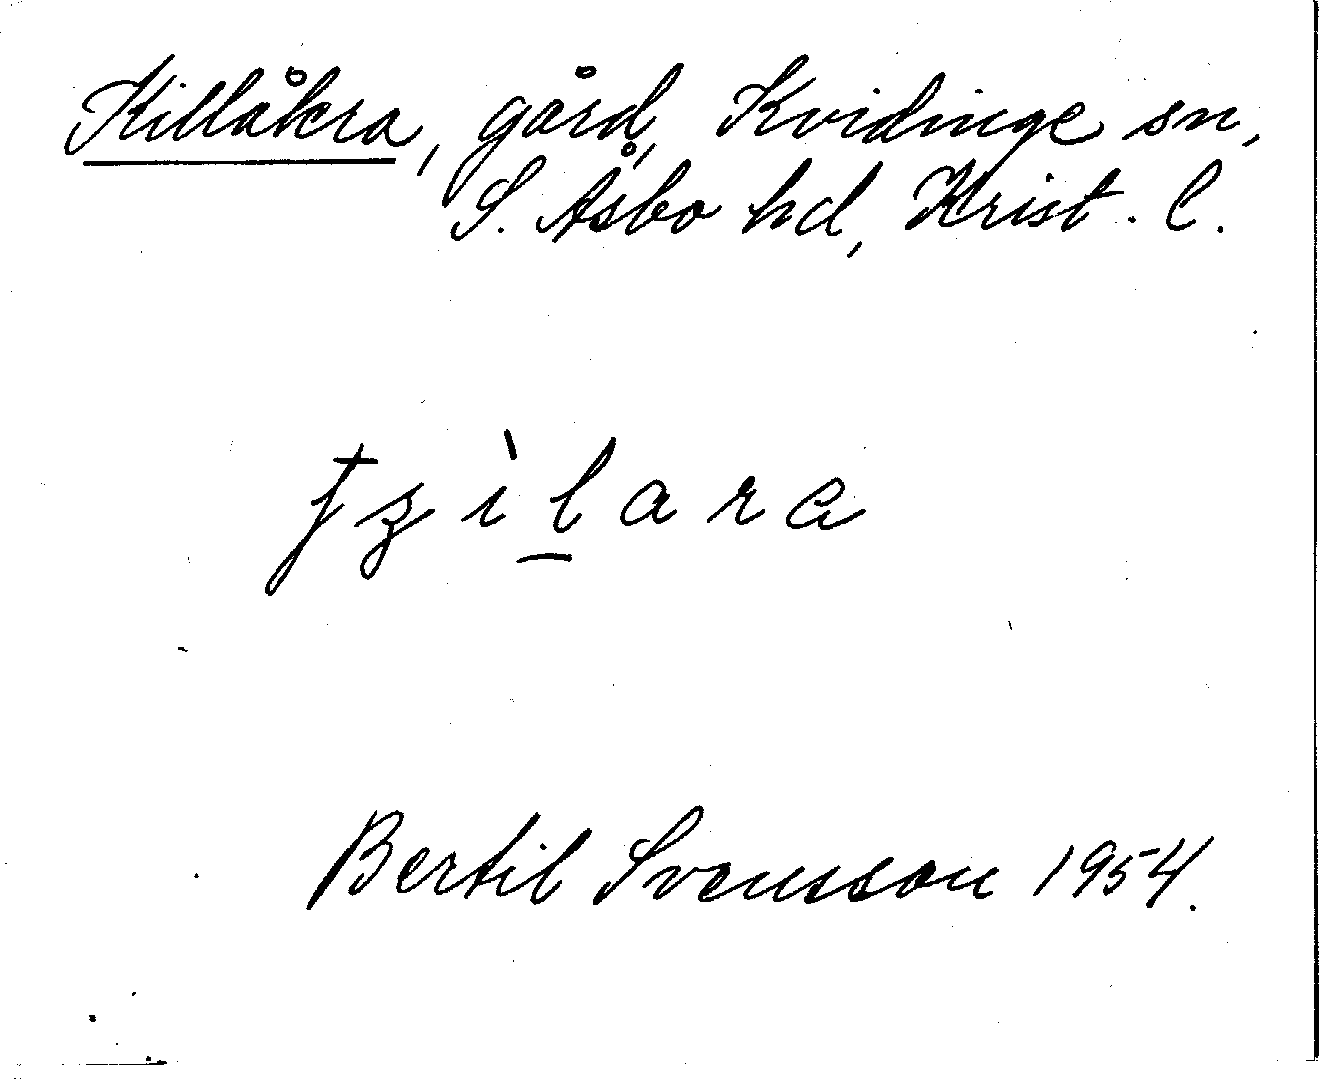 Killåkra, gård, Kvidinge sn,
S. Åsbo hd, Krist. l.
ɟʒìl̠arɐ
Bertil Svensson 1954.